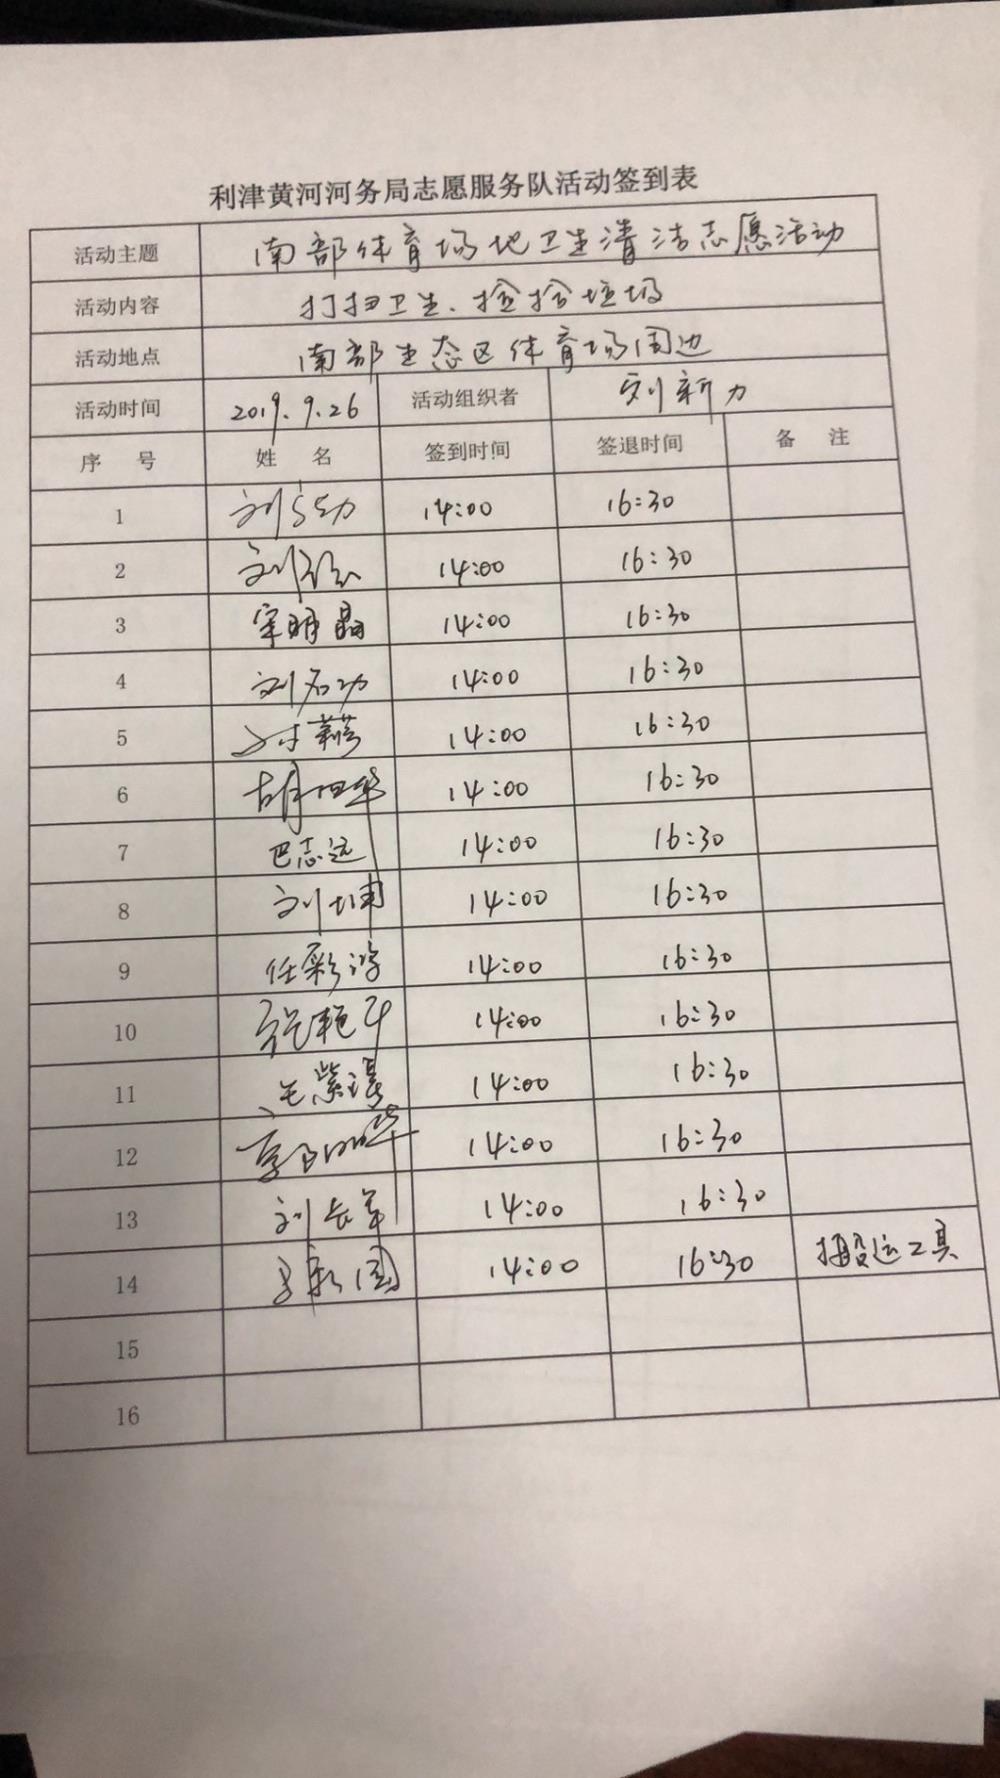 利津黄河河务局志愿服务队活动签到表
活动主题 南部体育场地卫生清洁志愿活动
活动内容 打扫卫生、捡拾垃圾
活动地点 南部生态区体育场周边
活动时间 2019.9.26 活动组织者 刘新力
序 号 姓 名 签到时间 签退时间 备 注
1 刘 14:00 16:30
2 刘 14:00 16:30
3 宋明晶 14:00 16:30
4 刘 14:00 16:30
5 14:00 16:30
6 胡 14:00 16:30
7 巴志远 14:00 16:30
8 刘 14:00 16:30
9 任彩 14:00 16:30
10 14:00 16:30
11 紫 14:00 16:30
12 14:00 16:30
13 刘长军 14:00 16:30
14 国 14:00 16:30 搬运工具
15
16